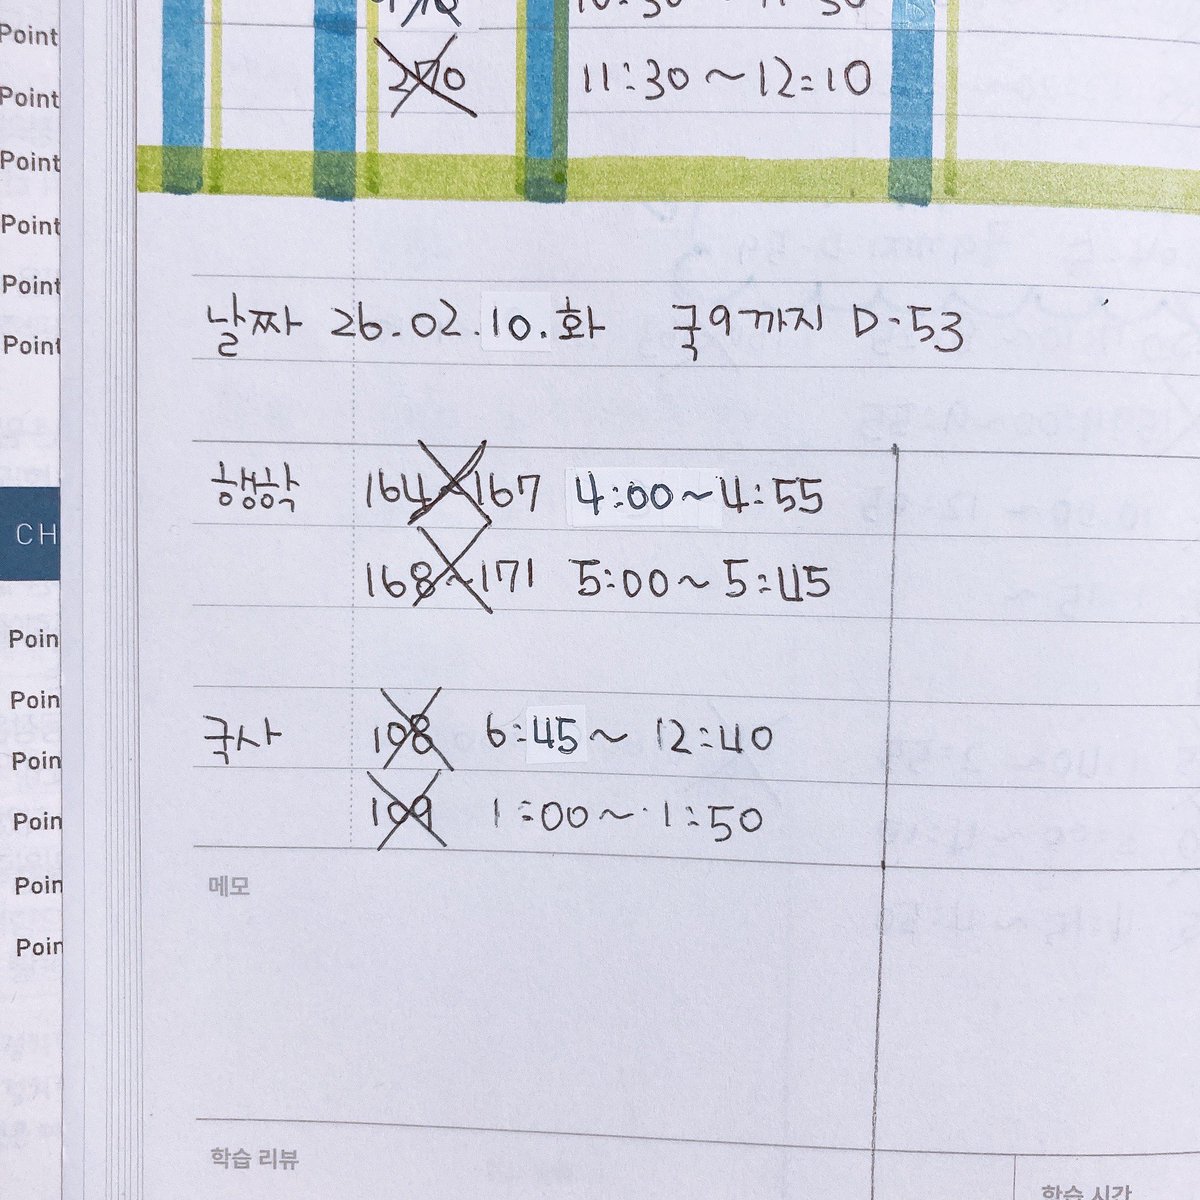 Point
Point
Point
Point
Point
Point
CH
Poin
Poin
Poin
Poin
Poin
Poin
270 11:30~12:10
날짜 26.02.10.화 국9까지 D-53
행학 164~167 4:00~4:55
168~171 5:00~5:45
국사 108 6:45~12:40
109 1:00~1:50
메모
학습 리뷰
학습 시간